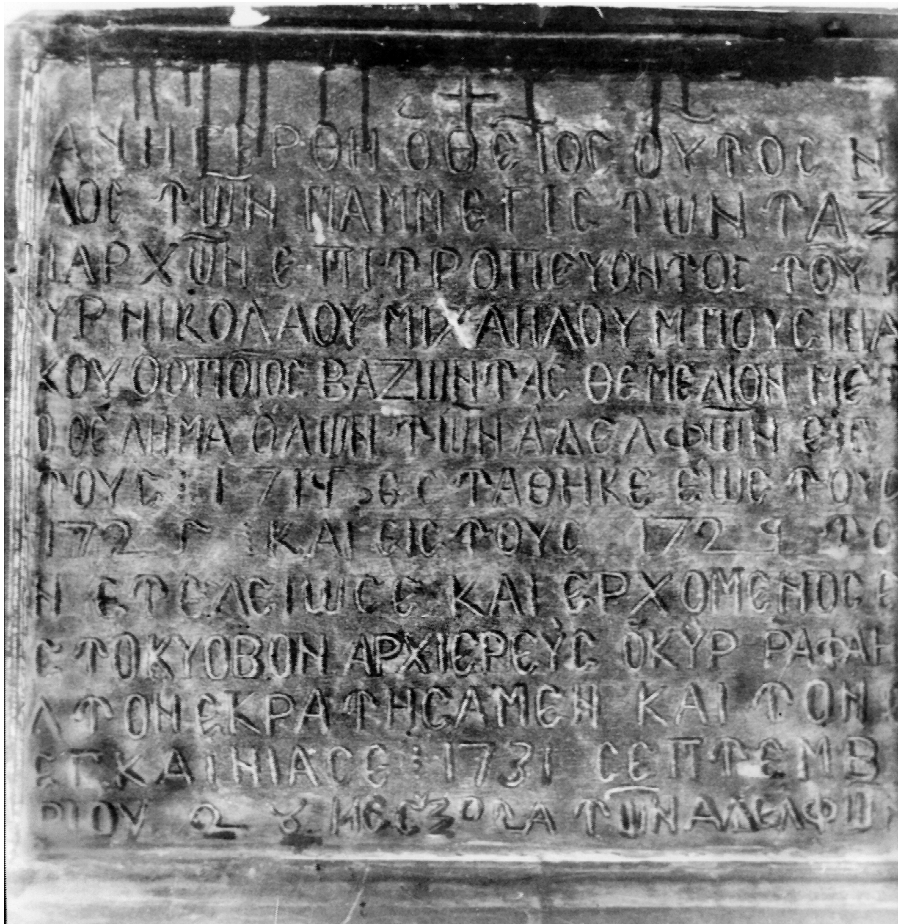 ΑΥΗΓΕΡΘΗ Ο ΘΕΙΟΣ ΟΥΤΟΣ Ν
ΑΟΣ ΤΩΝ ΠΑΜΜΕΓΙΣΤΩΝ ΤΑΞ
ΙΑΡΧΩΝ ΕΠΙΤΡΟΠΕΥΟΝΤΟΣ ΤΟΥ Κ
ΥΡ ΝΙΚΟΛΑΟΥ ΜΙΧΑΗΛΟΥ
ΚΟΥ Ο ΟΠΟΙΟΣ ΒΑΖΩΝΤΑΣ ΘΕΜΕΛΙΟΝ ΜΕ Τ
Ο ΘΕΛΗΜΑ ΟΛΩΝ ΤΩΝ ΑΔΕΛΦΩΝ ΕΙΣ
ΤΟΥΣ : ΕΣΤΑΘΗΚΕ ΕΩΣ ΤΟΥΣ
ΚΑΙ ΕΙΣ ΤΟΥΣ 1729 ΤΟ
Ν ΕΤΕΛΕΙΩΣΕ ΚΑΙ ΕΡΧΟΜΕΝΟΣ Ε
Σ ΤΟ ΚΥΟΒΟΝ ΑΡΧΙΕΡΕΥΣ Ο ΚΥΡ ΡΑΦΑΗ
Λ ΤΟΝ ΕΚΡΑΤΗΣΑΜΕΝ ΚΑΙ ΤΟΝ Ε
ΕΓΚΑΙΝΙΑΣΕ : 1731 ΣΕΠΤΕΜΒ
ΡΙΟΥ ΤΩΝ ΑΔΕΛΦΩΝ